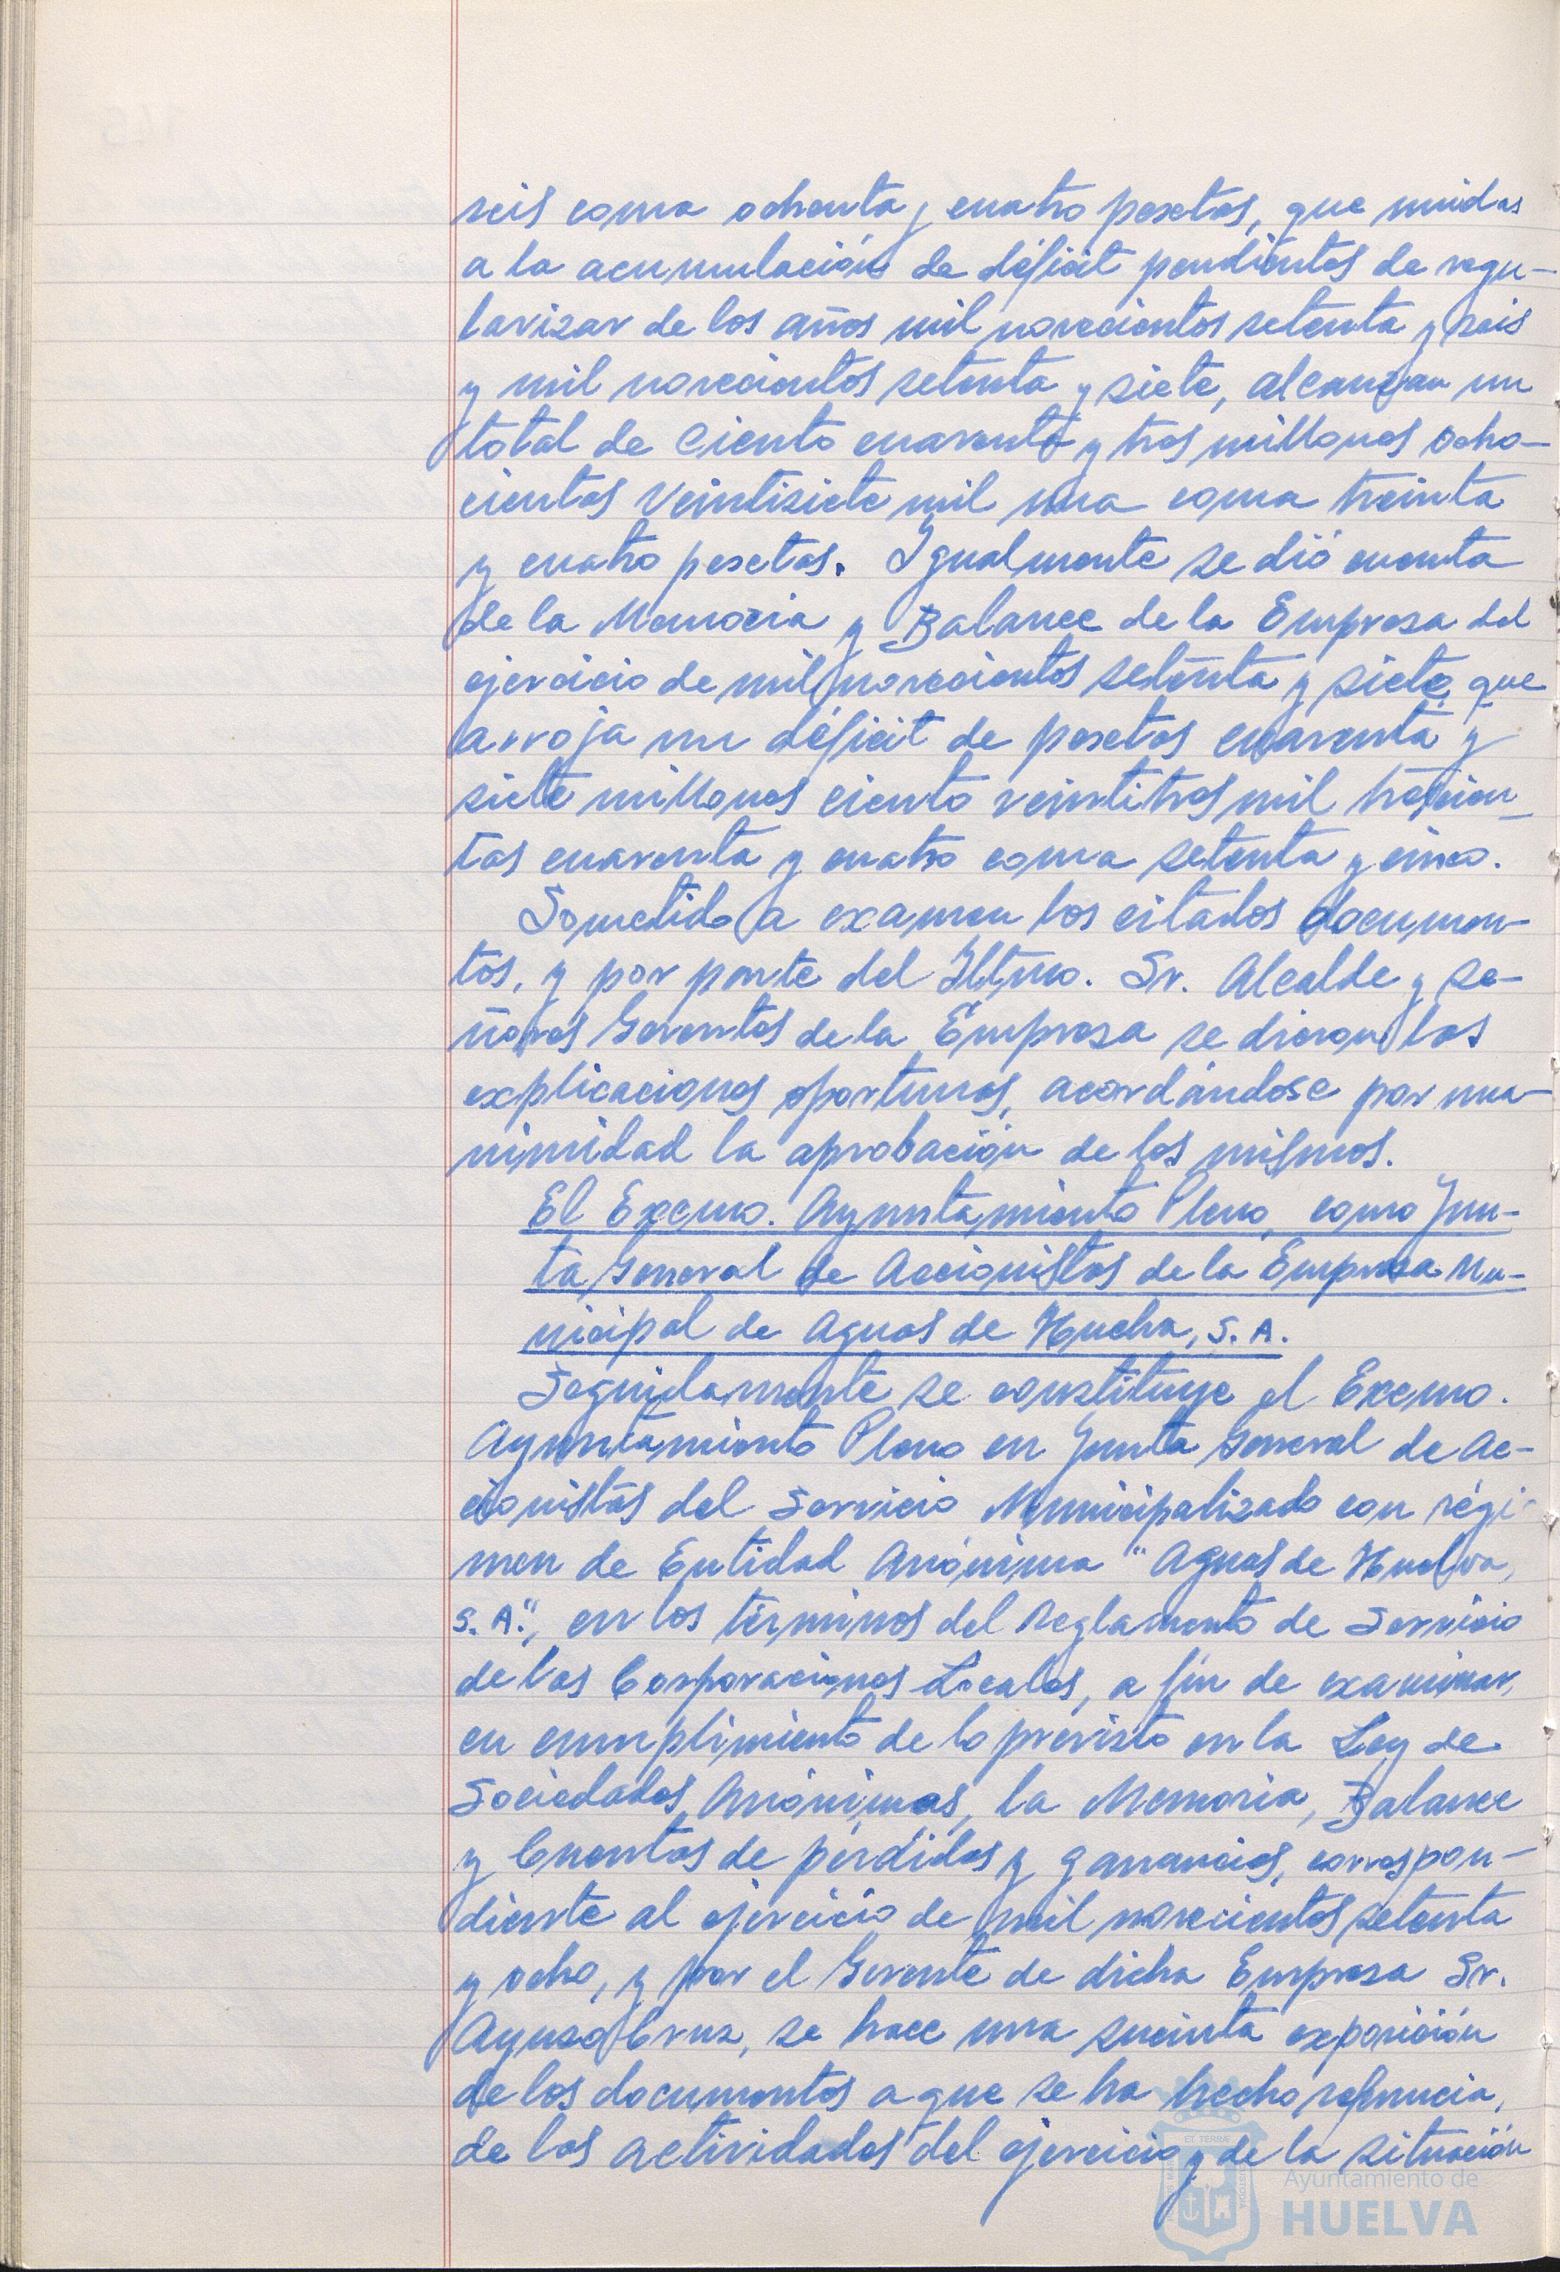 seis coma ochenta y cuatro pesetas, que unidas
a la acumulación de déficit pendientes de regu-
larizar de los años mil novecientos setenta y seis
y mil novecientos setenta y siete, alcanzan un
total de Ciento cuarenta y tres millones ocho-
cientas veintisiete mil una coma treinta
y cuatro pesetas. Igualmente se dió cuenta
de la Memoria y Balance de la Empresa del
ejercicio de mil novecientos setenta y siete, que
arroja un déficit de pesetas cuarenta y
siete millones ciento veintitres mil trescien-
tas cuarenta y cuatro coma setenta y cinco.
Sometido a examen los citados documen-
tos, y por parte del Iltmo. Sr. Alcalde y Se-
ñores Gerentes de la Empresa se dieron las
explicaciones oportunas, acordándose por una-
nimidad la aprobación de los mismos.
El Excmo. Ayuntamiento Pleno, como Jun-
ta General de Accionistas de la Empresa Mu-
nicipal de Aguas de Huelva, S. A.
Seguidamente se constituye el Excmo.
Ayuntamiento Pleno en Junta General de Ac-
cionistas del Servicio Municipalizado con régi-
men de Entidad Anónima "Aguas de Huelva,
S. A.", en los términos del Reglamento de Servicio
de las Corporaciones Locales, a fin de examinar,
en cumplimiento de lo previsto en la Ley de
Sociedades Anónimas, la Memoria, Balance
y Cuentas de pérdidas y ganancias, correspon-
diente al ejercicio de mil novecientos setenta
y ocho, y por el Gerente de dicha Empresa Sr.
Ayuso Cruz, se hace una sucinta exposición
de los documentos a que se ha hecho referencia,
de las actividades del ejercicio y de la situación
Ayuntamiento de
HUELVA